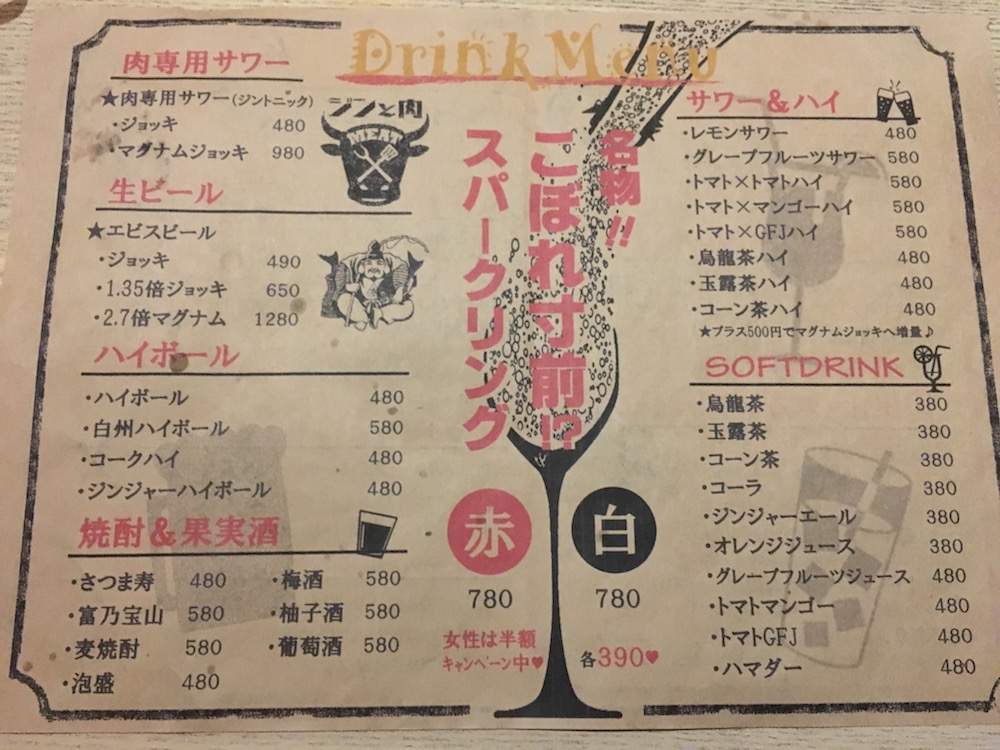 Drink Menu
肉専用サワー
★肉専用サワー(ジントニック)
・ジョッキ 480
・マグナムジョッキ 980
ジンと肉
MEAT
生ビール
★エビスビール
・ジョッキ 490
・1.35倍ジョッキ 650
・2.7倍マグナム 1280
ハイボール
・ハイボール 480
・白州ハイボール 580
・コークハイ 480
・ジンジャーハイボール 480
焼酎&果実酒
・さつま寿 480
・富乃宝山 580
・麦焼酎 580
・泡盛 480
・梅酒 580
・柚子酒 580
・葡萄酒 580
名物!!
こぼれ寸前!?
スパークリング
赤
780
白
780
女性は半額
キャンペーン中♥
各390♥
サワー&ハイ
・レモンサワー 480
・グレープフルーツサワー 580
・トマト×トマトハイ 580
・トマト×マンゴーハイ 580
・トマト×GFJハイ 580
・烏龍茶ハイ 480
・玉露茶ハイ 480
・コーン茶ハイ 480
★プラス500円でマグナムジョッキへ増量♪
SOFTDRINK
・烏龍茶 380
・玉露茶 380
・コーン茶 380
・コーラ 380
・ジンジャーエール 380
・オレンジジュース 380
・グレープフルーツジュース 480
・トマトマンゴー 480
・トマトGFJ 480
・ハマダー 480